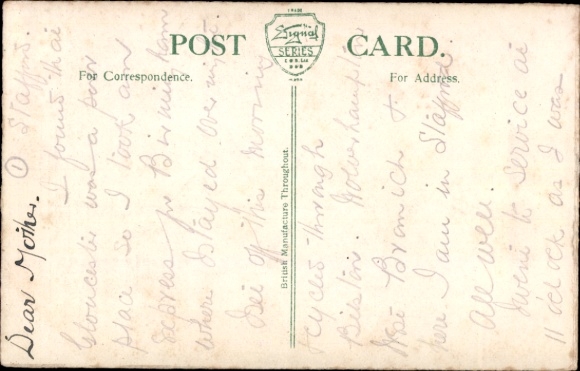 POST CARD.
1912
Signal
SERIES
For Correspondence.
For Address.
British Manufacture Throughout.
① Stafford
Dear Mother.
I found that
Gloucester was a poor
place so I took am
address for Birmingham
where Stayed over night
Left this morning
cycled through
Bilston. Wolverhampton
West Bromich +
here I am in Stafford
All well.
Went to Service at
11 o'clock as I was